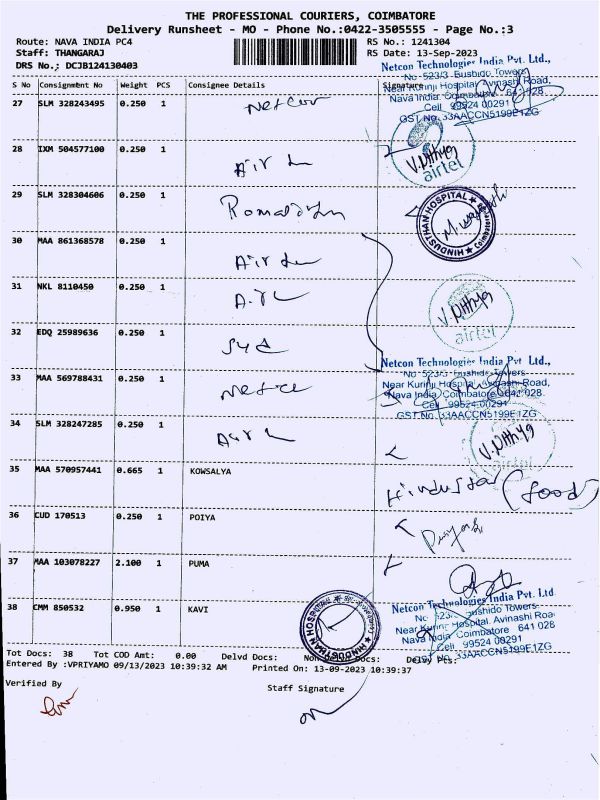 THE PROFESSIONAL COURIERS, COIMBATORE
Delivery Runsheet - MO - Phone No.:0422-3505555 - Page No.:3
Route: NAVA INDIA PC4 RS No.: 1241304
Staff: THANGARAJ RS Date: 13-Sep-2023
DRS No.: DCJB124130403
Netcon Technologies India Pvt. Ltd.,
No 523/3 Bushido Towers
Near Kurinji Hospital, Avinashi Road,
Nava India Coimbatore 641 028
Cell 99524 00291
GST No. 33AACCN5199E1ZG
S No Consignment No Weight PCS Consignee Details Signature
27 SLM 328243495 0.250 1 Netcon
28 IXM 504577100 0.250 1 Airtel
V. Nithya
airtel
29 SLM 328304606 0.250 1
HINDUSTHAN HOSPITAL
Coimbatore
30 MAA 861368578 0.250 1 Airtel
31 NKL 8110450 0.250 1
V. Nithya
airtel
32 EDQ 25989636 0.250 1
Netcon Technologies India Pvt. Ltd.,
No 523/3 Bushido Towers
33 MAA 569788431 0.250 1
Near Kurinji Hospital, Avinashi Road,
Nava India Coimbatore 641 028
Cell 99524 00291
GST No. 33AACCN5199E1ZG
34 SLM 328247285 0.250 1
V. Nithya
airtel
35 MAA 570957441 0.665 1 KOWSALYA
Hindustan (food)
36 CUD 170513 0.250 1 POIYA
37 MAA 103078227 2.100 1 PUMA
38 CMM 850532 0.950 1 KAVI
HINDUSTHAN HOSPITAL
Netcon Technologies India Pvt. Ltd
No 523/3 Bushido Towers
Near Kurinji Hospital, Avinashi Roa
Nava India Coimbatore 641 028
Cell 99524 00291
GST No. 33AACCN5199E1ZG
Tot Docs: 38 Tot COD Amt: 0.00 Delvd Docs: Docs: Delvd Pcs:
Entered By :VPRIYAMO 09/13/2023 10:39:32 AM Printed On: 13-09-2023 10:39:37
Verified By Staff Signature